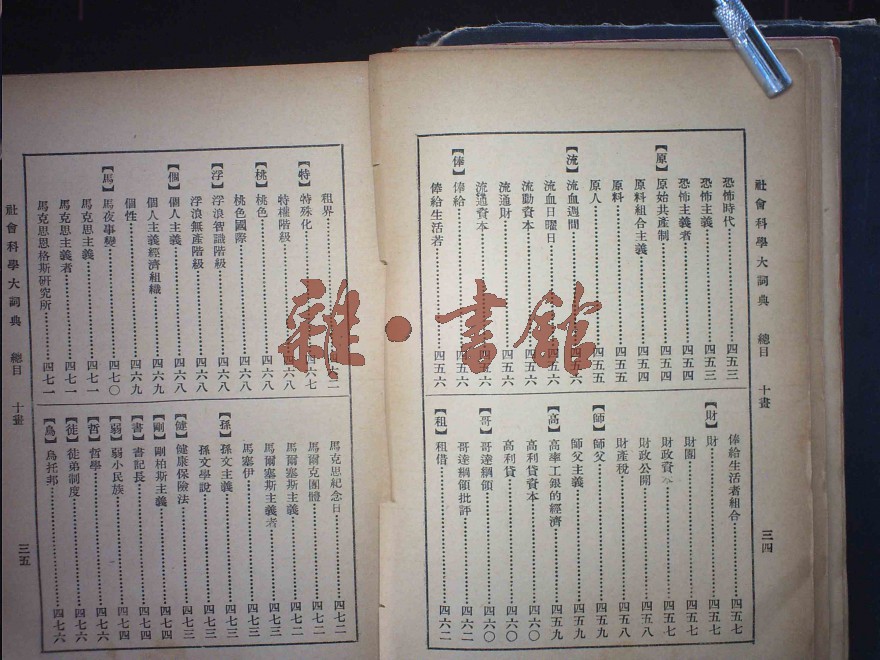 社會科學大詞典 總目 十畫 三四
恐怖時代 四五三
恐怖主義 四五三
恐怖主義者 四五四
【原】原始共產制 四五四
原料組合主義 四五四
原料 四五五
原人 四五五
【流】流血週間 四五六
流血日曜日
流動資本 四五六
流通財 四五六
流通資本 四五六
【俸】俸給 四五六
俸給生活若 四五六
俸給生活者組合 四五七
【財】財 四五七
財閥 四五七
財政資本
財政公開 四五八
財產稅 四五八
【師】師父 四五九
師父主義 四五九
【高】高率工銀的經濟 四五九
高利貸資本 四六〇
高利貸 四六〇
【哥】哥達綱領 四六〇
哥達綱領批評 四六二
【租】租借 四六二
租界
【特】特殊化 四六七
特權階級 四六八
【桃】桃色 四六八
桃色國際 四六八
【浮】浮浪智識階級 四六八
浮浪無產階級 四六八
【個】個人主義 四六八
個人主義經濟組織 四六九
個性 四六九
【馬】馬夜事變 四七〇
馬克思主義 四七一
馬克思主義者 四七一
馬克思恩格斯研究所 四七一
馬克思紀念日 四七二
馬爾克團體 四七二
馬爾塞斯主義 四七二
馬爾塞斯主義者 四七三
馬塞伊 四七三
【孫】孫文主義 四七三
孫文學說 四七三
【健】健康保險法 四七三
【剛】剛柏斯主義 四七四
【書】書記長 四七四
【弱】弱小民族 四七四
【哲】哲學 四七六
【徒】徒弟制度 四七六
【烏】烏托邦 四七六
社會科學大詞典 總目 十畫 三五
雜·書館